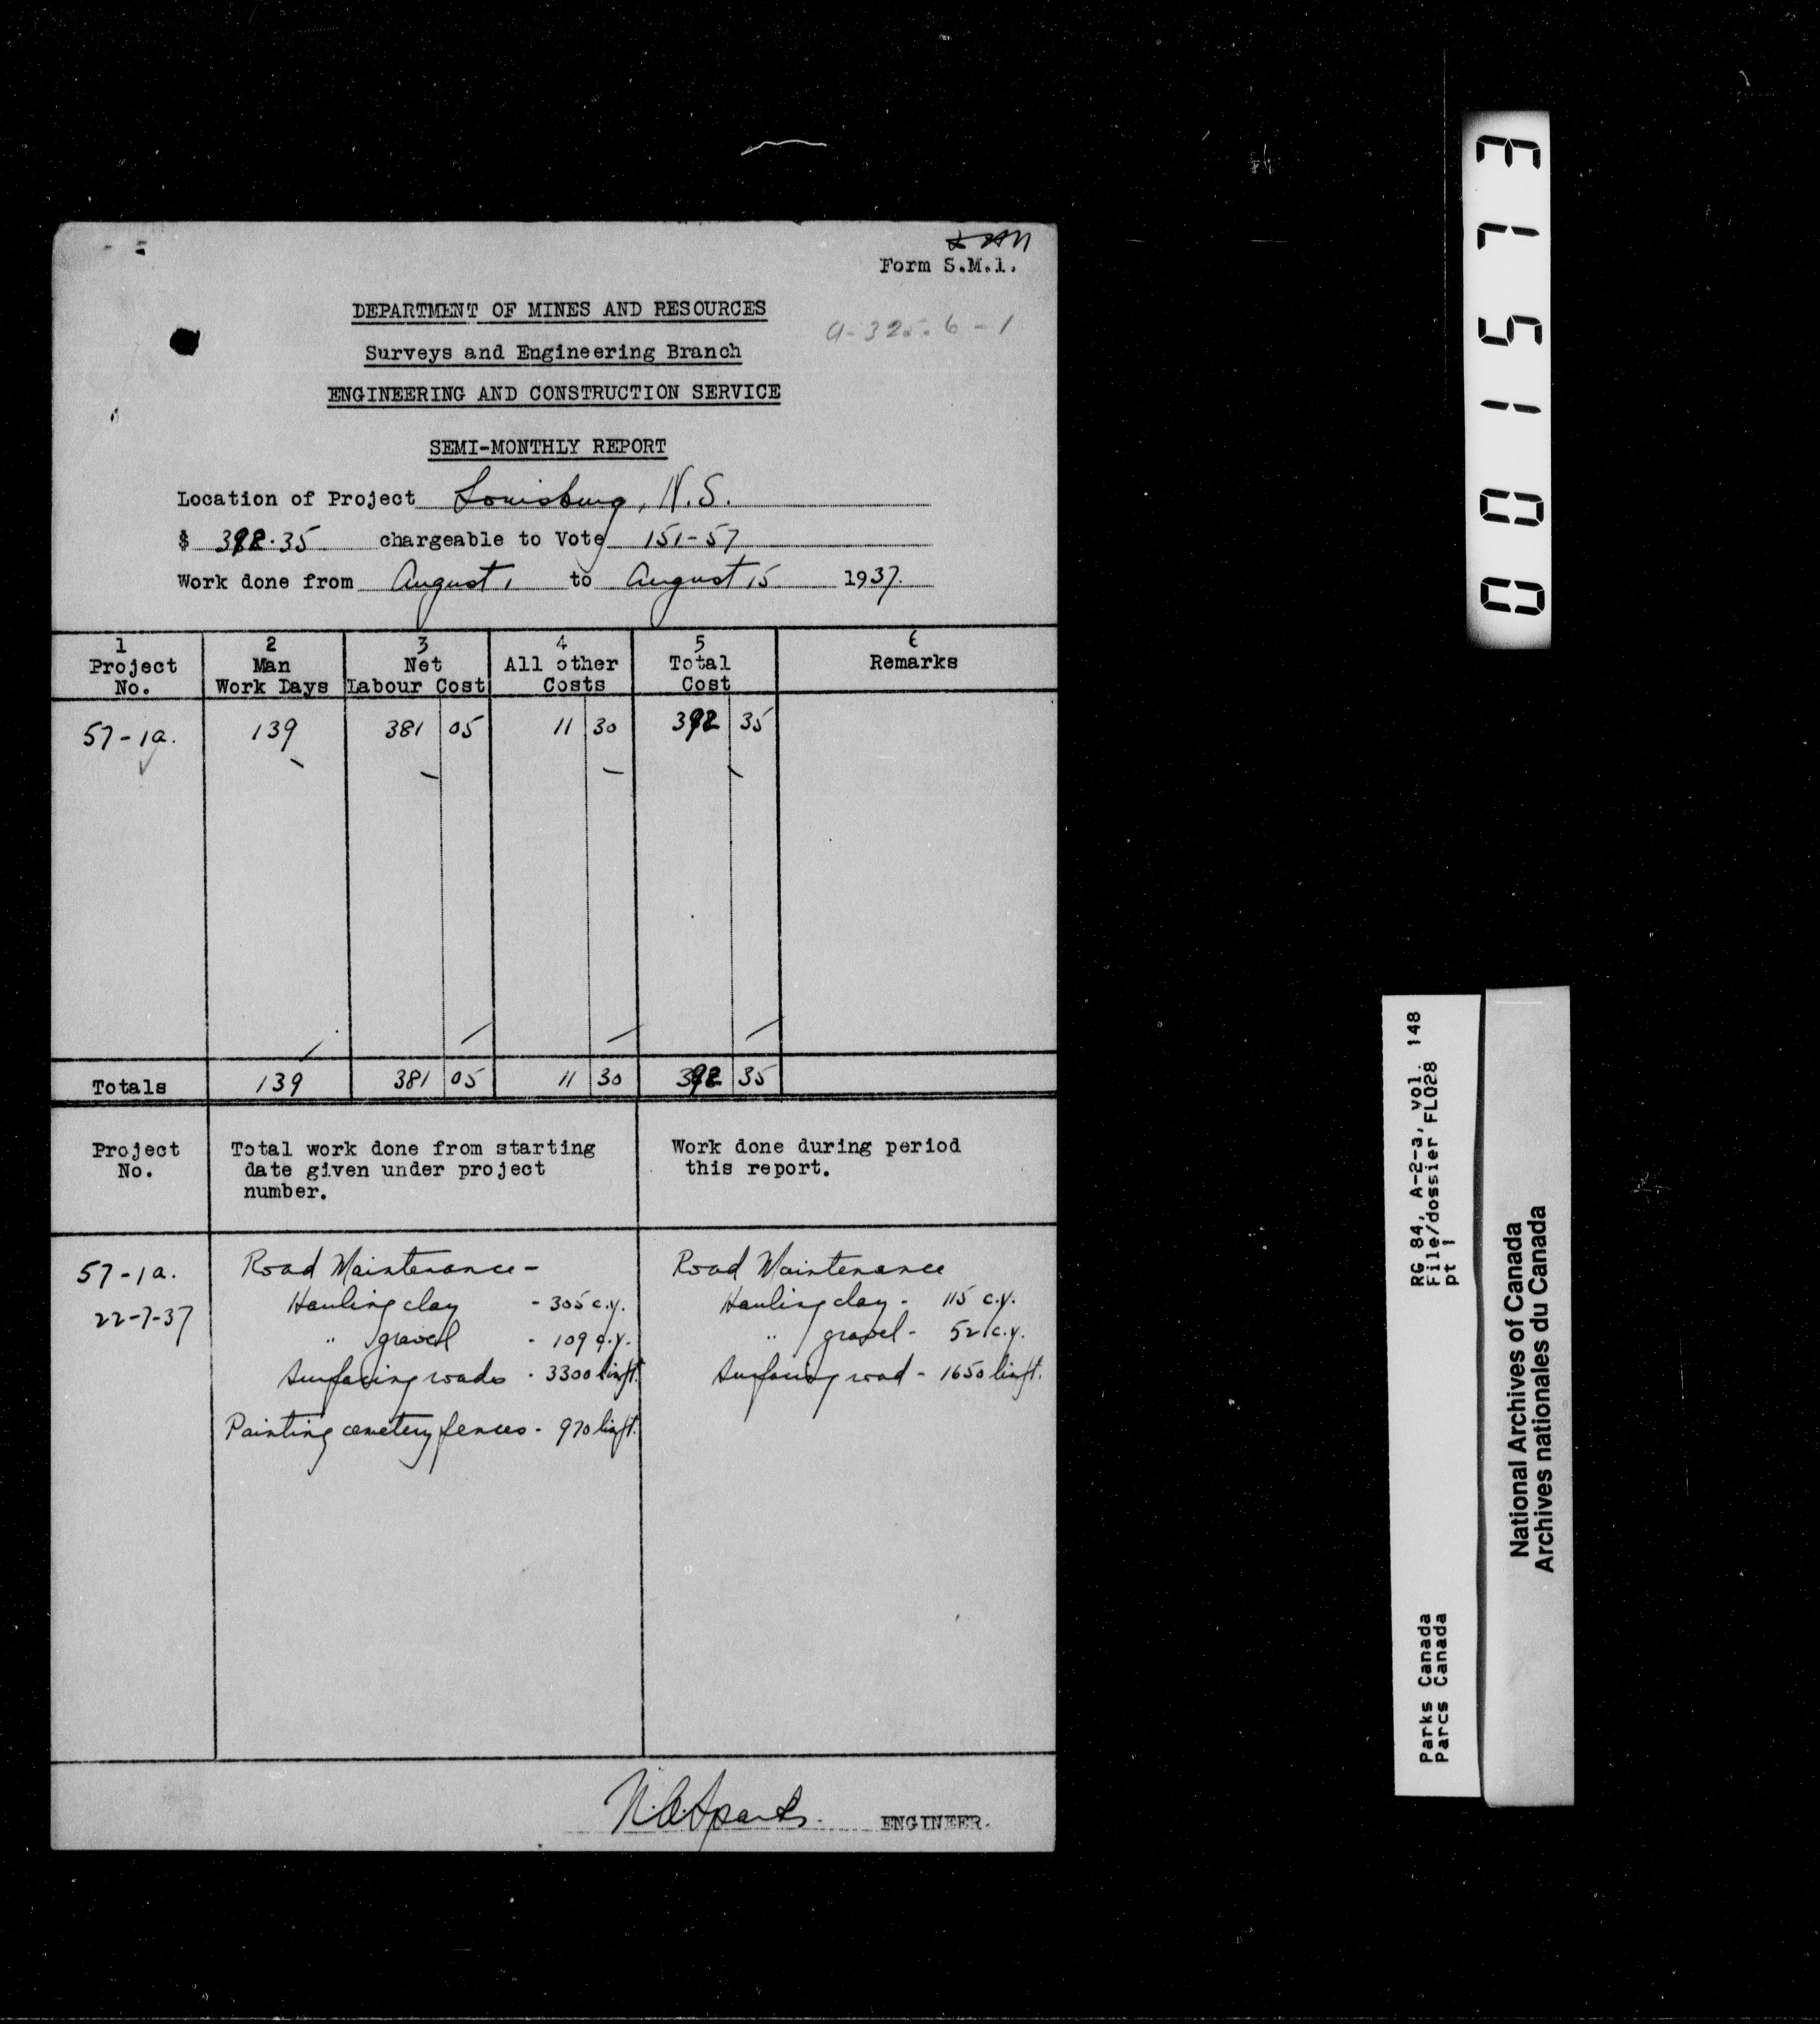 Form S.M.1.
DEPARTMENT OF MINES AND RESOURCES
a-325-6-1
Surveys and Engineering Branch
ENGINEERING AND CONSTRUCTION SERVICE
SEMI-MONTHLY REPORT
Location of Project Louisburg, N.S.
$ 392.35 chargeable to Vote 151-57
Work done from August 1 to August 15 1937.
1 2 3 4 5 6
Project Man Net All other Total Remarks
No. Work Days Labour Cost Costs Cost
57-1a. 139 381 05 11 30 392 35
Totals 139 381 05 11 30 392 35
Project Total work done from starting Work done during period
No. date given under project this report.
number.
57-1a. Road Maintenance - Road Maintenance
22-7-37 Hauling clay - 305 c.y. Hauling clay - 115 c.y.
" gravel - 109 c.y. " gravel - 52 c.y.
Surfacing roads - 3300 lin ft. Surfacing road - 1650 lin ft.
Painting cemetery fences - 970 lin ft.
ENGINEER.
001573
RG 84, A-2-3, vol. 148
File/dossier FLO28
pt 1
Parks Canada
Parcs Canada
National Archives of Canada
Archives nationales du Canada